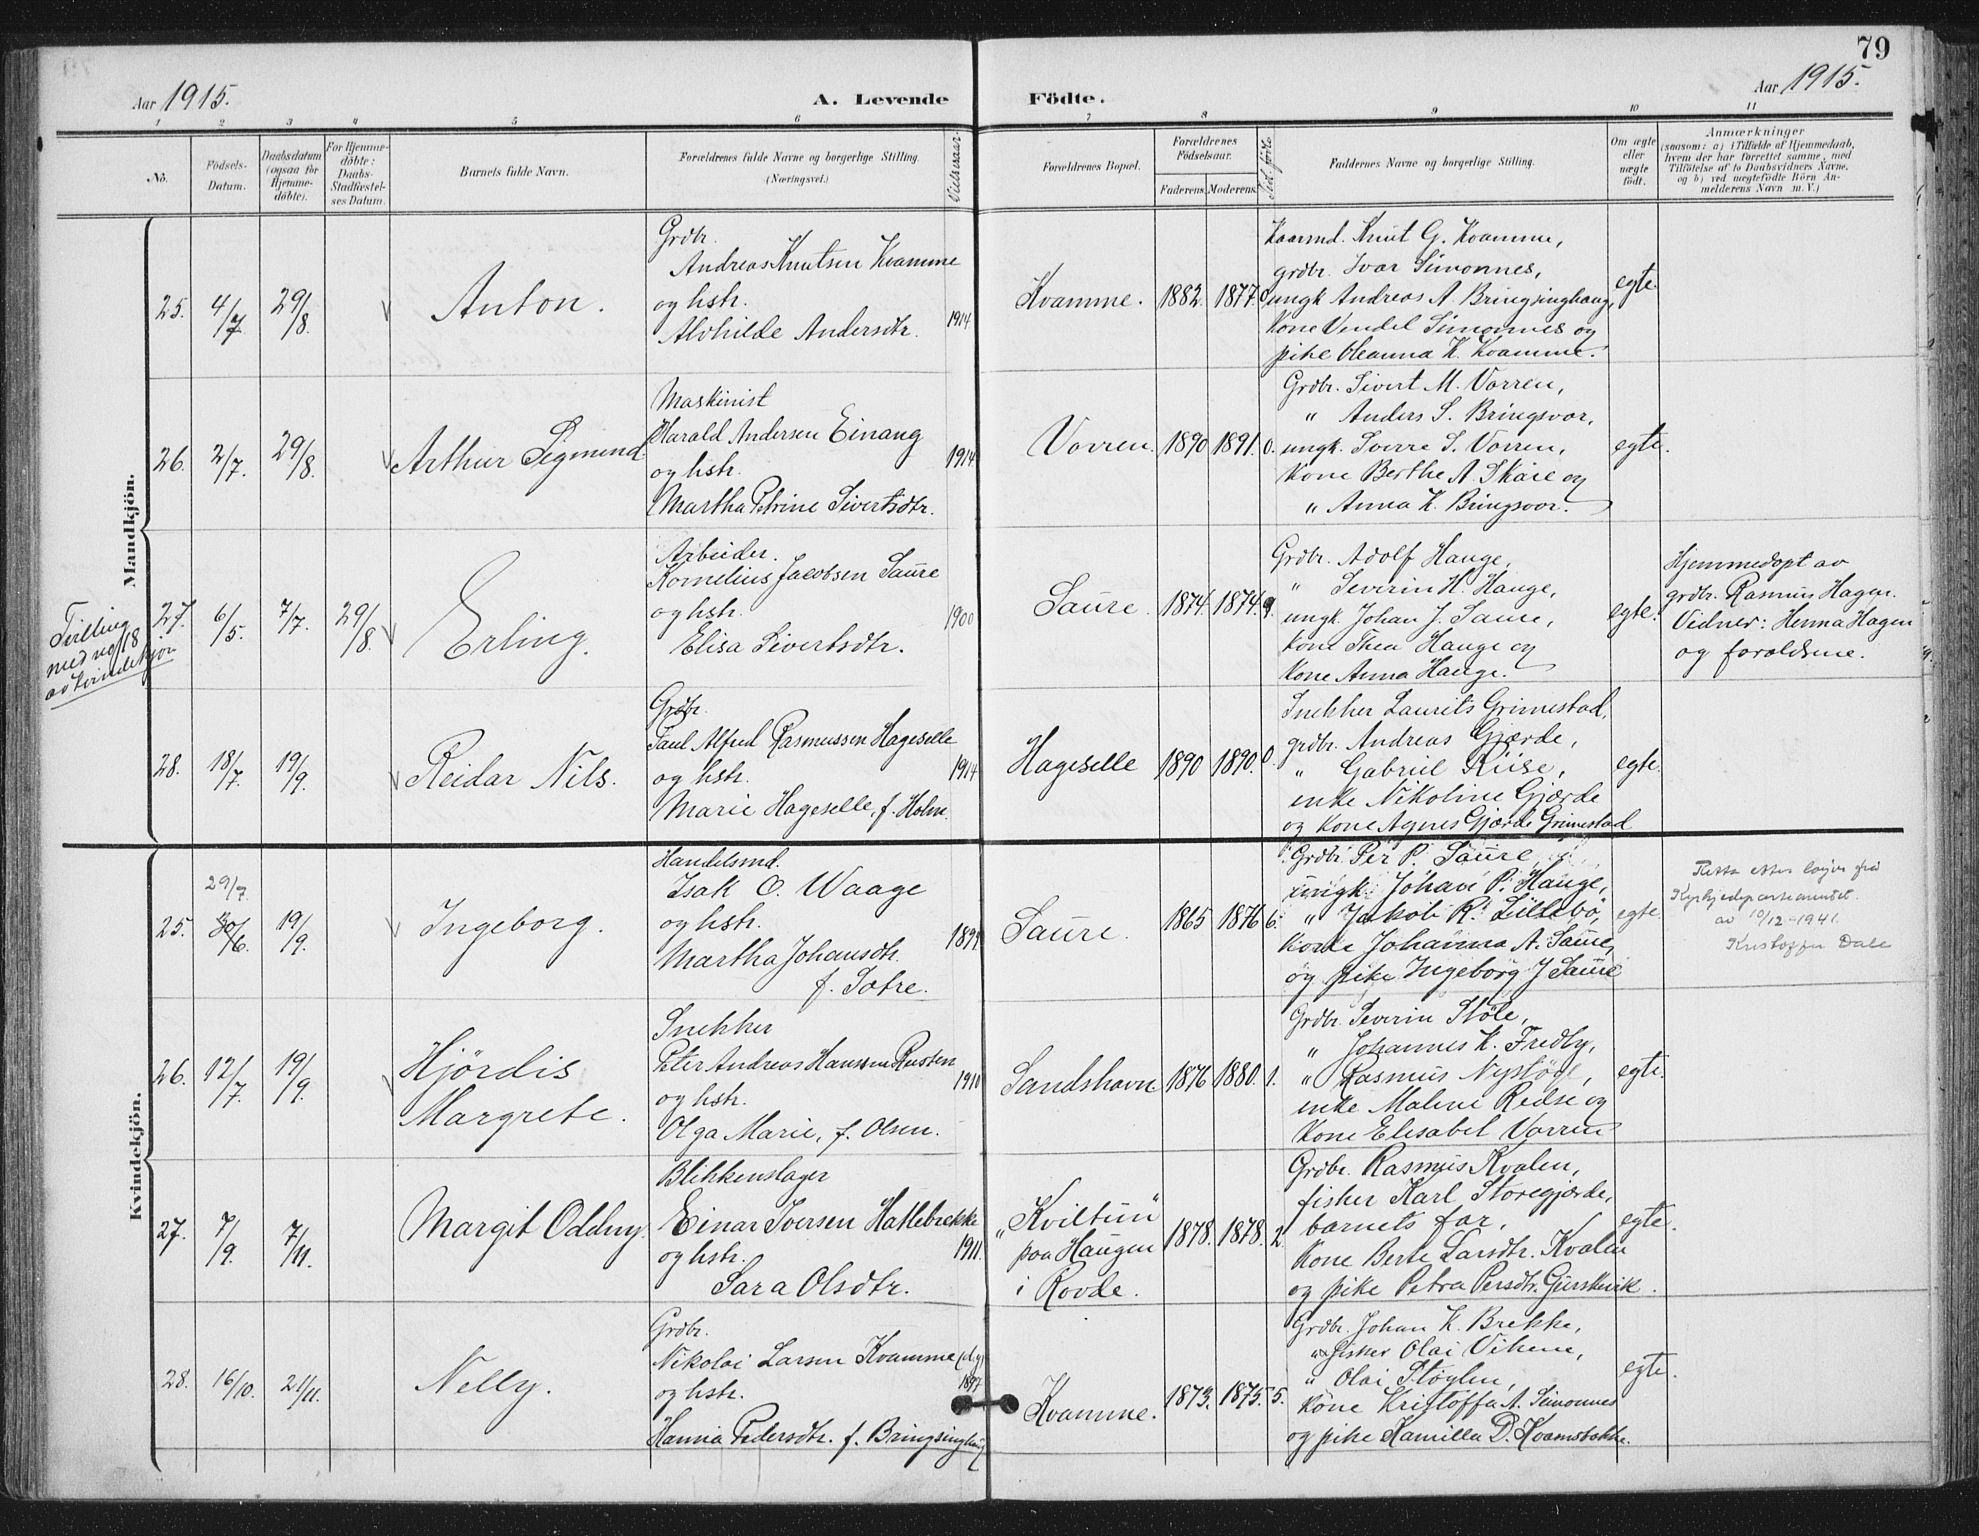 79
Aar 1915.
A. Levende Födte.
Aar 1915.
1 2 3 4 5 6 7 8 9 10 11
No.
Födsels-Datum.
Daabsdatum (ogsaa for Hjemmedöbte).
For Hjemmedöbte: Daabs-Stadfæstelses Datum.
Barnets fulde Navn.
Forældrenes fulde Navne og borgerlige Stilling.
(Næringsvei.)
Vielsesaar.
Forældrenes Bopæl.
Forældrenes Födselsaar.
Faderens. Moderens.
Faddernes Navne og borgerlige Stilling.
Om ægte eller uægte födt.
Anmærkninger
(saasom: a) i Tilfælde af Hjemmedaab, hvem der har forrettet samme, med Tilföielse af to Daabsvidners Navne, og b) ved uægtefödte Börn Anmelderens Navn m. V.)
Mandkjön.
25. 4/7 29/8. Anton.
Grdbr.
Andreas Knutsen Kvamme
og hstr.
Alvhilde Andersdtr.
1914
Kvamme. 1882. 1877.
Kaarmd. Knut G. Kvamme,
grdbr. Ivar Simonnes,
ungk Andreas A. Bringsinghaug,
Kone Vendel Simonnes og
pike Oleanna K. Kvamme.
egte.
26. 2/7. 29/8. Arthur Sigmund
Maskinist
Harald Andersen Einang
og hstr.
Martha Petrine Sivertsdtr.
1914
Vorren. 1890 1891. 0.
Grdbr. Sivert M. Vorren,
" Anders S. Bringsvor,
ungk. Sverre S. Vorren,
Kone Berthe A. Skare og
" Anna K. Bringsvor.
egte.
Tvilling
med no 18
av kvindekjön
27. 6/5. 7/7. 29/8. Erling.
Arbeider.
Kornelius Jacobsen Saure
og hstr.
Elisa Sivertsdtr.
1900
Saure. 1874. 1874. 9.
Grdbr. Adolf Hauge,
" Severin K. Hauge,
ungk. Johan J. Saure,
kone Thea Hauge og
Kone Anna Hauge.
egte.
Hjemmedöpt av
grdbr. Rasmus Hagen.
Vidner: Henna Hagen
og foroldrene.
28. 18/7. 19/9. Reidar Nils.
Grdbr.
Paul Alfred Rasmussen Hageselle
og hstr.
Marie Hageselle, f. Holm.
1914
Hageselle 1890 1890. 0.
Snekker Laurits Grimestad,
grdbr. Andreas Gjærde,
" Gabriel Riise,
enke Nikoline Gjærde
og Kone Agnes Gjærde Grimestad
egte.
Kvindekjön.
25. 29/7 30/6. 19/9. Ingeborg.
Handelsmd.
Isak O. Waage
og hstr.
Martha Johansdtr.
f. Sætre.
1899
Saure. 1865 1876 6.
Grdbr Per P. Saure,
ungk. Johan P. Hauge,
" Jakob R. Lillebö,
kone Johanna A. Saure
og pike Ingeborg J Saure
egte
Retta etter löyve frå
Kyrkjedepartementet.
av 10/12-1941.
Kristoffer Dale
26. 12/7. 19/9. Hjördis
Margrete.
Snekker
Peter Andreas Hanssen Rusten
og hstr.
Olga Marie, f. Olsen.
1910
Sandshavn 1876 1880. 1.
Grdbr. Severin Stöle,
" Johannes K. Fredly,
" Rasmus Nystöle,
enke Malene Redse og
Kone Elisabet Vorren
egte.
27. 7/9. 7/11. Margit Oddny.
Blikkenslager
Einar Iversen Hatlebrekke
og hstr.
Sara Olsdtr.
1911.
"Kviltun"
paa Haugen
i Rovde.
1878. 1878. 2.
Grdbr. Rasmus Kvalen,
fisker Karl Storegjærde,
barnets far,
Kone Berte Larsdtr. Kvalen
og pike Petra Persdtr. Gurskevik.
egte.
28. 16/10. 21/11. Nelly.
Grdbr.
Nikolai Larsen Kvamme
og hstr.
Hanna Pedersdtr. f. Bringsinghaug
1897
Kvamme. 1873. 1875. 5.
Grdbr Johan K. Brekke,
fisker Olai Vikene,
" Olai Stöylen,
Kone Kristoffa A. Simonnes
og pike Kamilla D. Kvamsbakke.
egte.